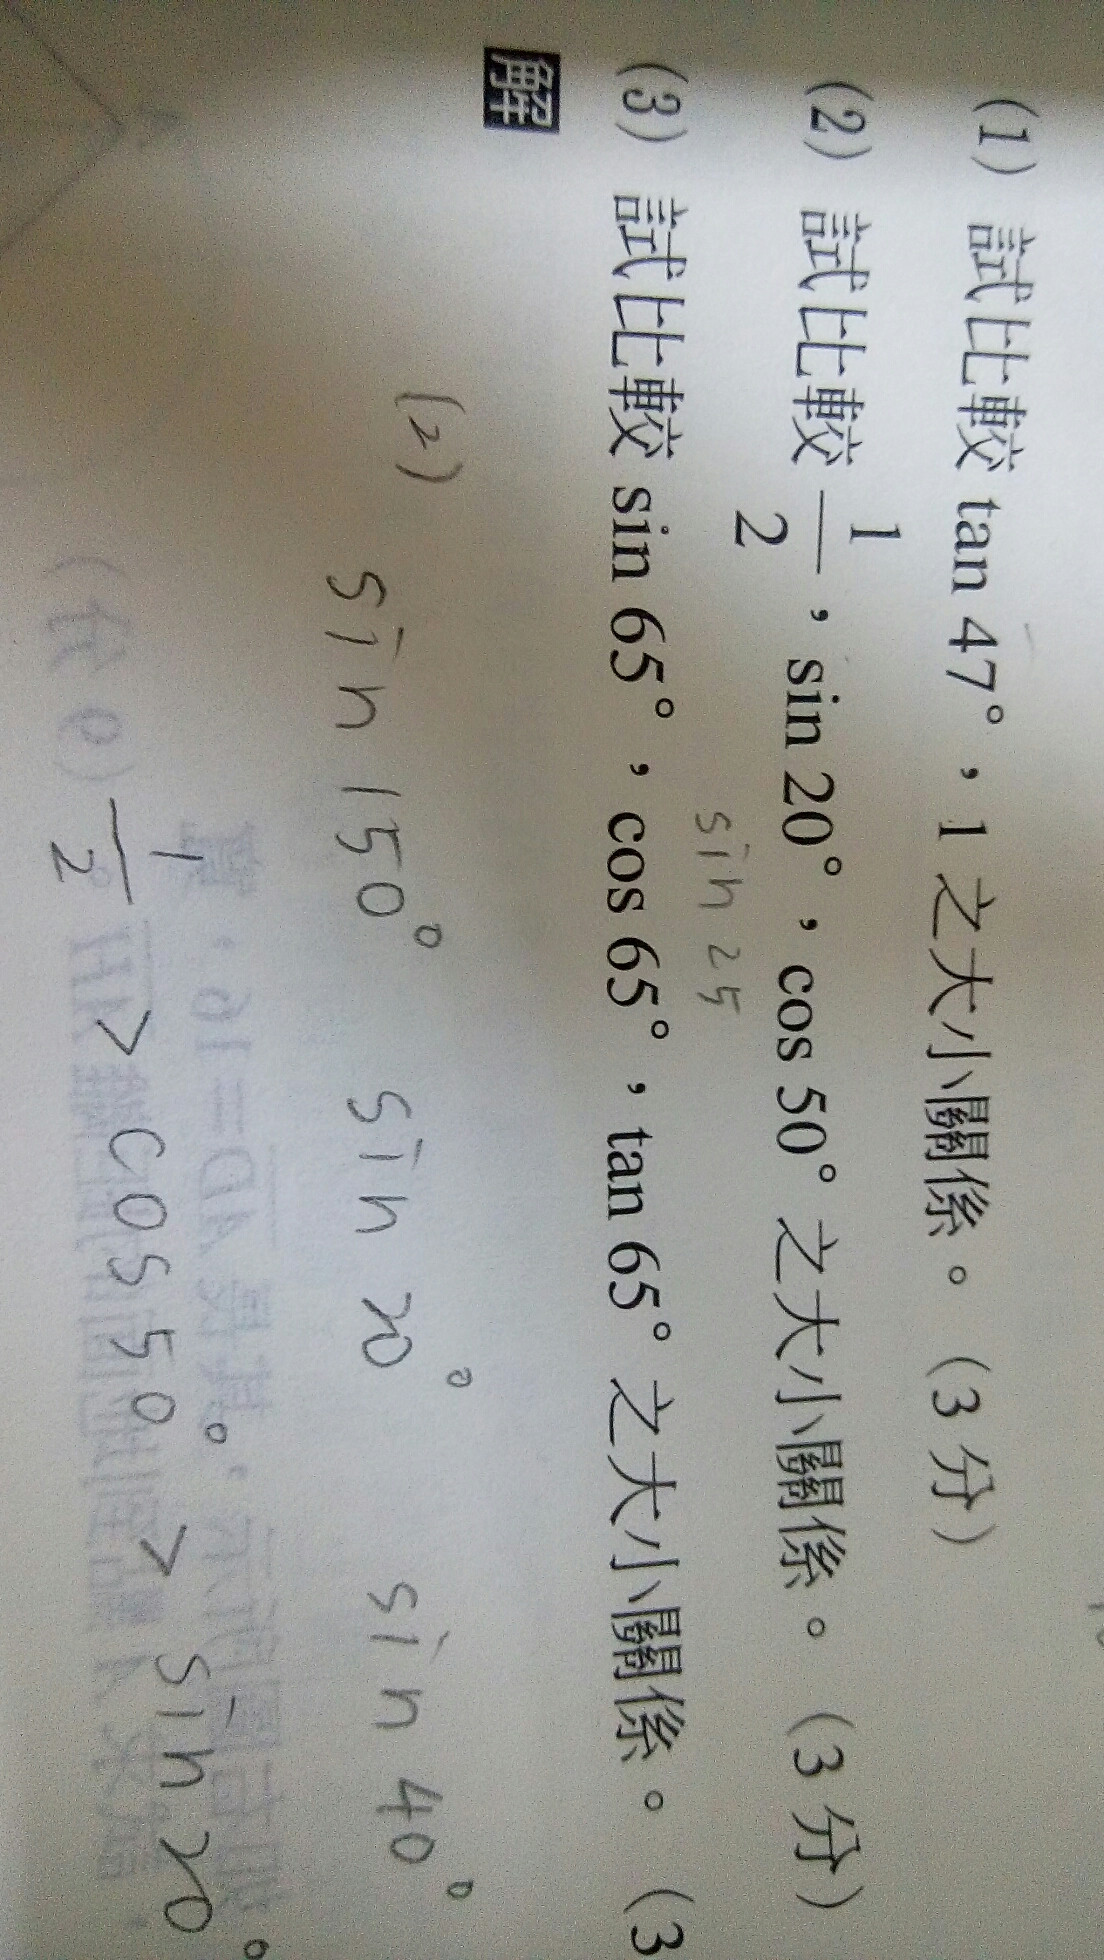 (1) 試比較 tan 47°，1 之大小關係。（3 分）
(2) 試比較 1/2，sin 20°，cos 50° 之大小關係。（3 分）
sin 25
(3) 試比較 sin 65°，cos 65°，tan 65° 之大小關係。（3
解
(2)
sin 150° sin 20° sin 40°
1/2 > cos 50° > sin 20°